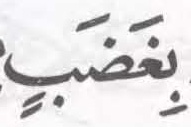 بِغَضَبٍ